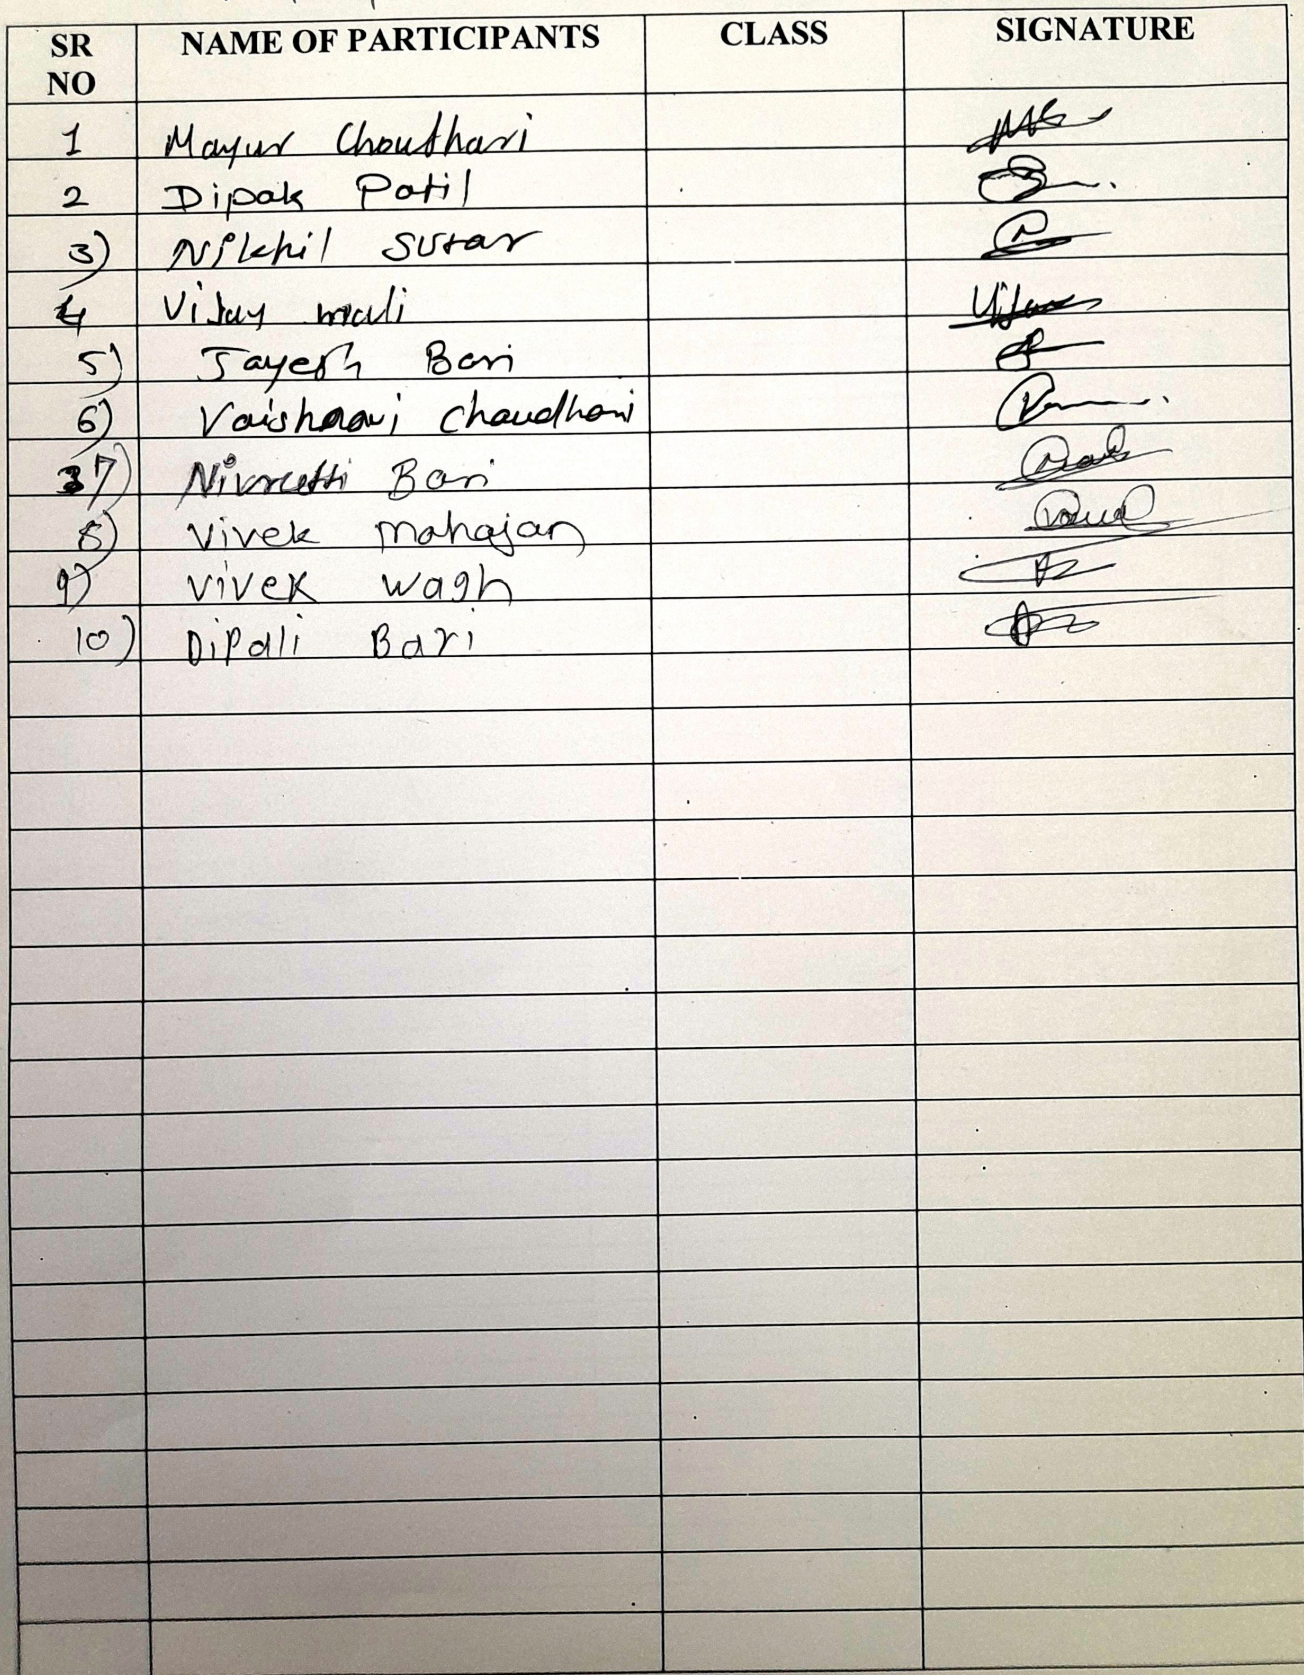 SR NO NAME OF PARTICIPANTS CLASS SIGNATURE
1 Mayur Chouthari
2 Dipak Patil
3) Nikhil Sutar
4 Vijay mali
5) Jayesh Bari
6) Vaishnavi Chaudhari
7) Nivrutti Bari
8) Vivek Mahajan
9) Vivek wagh
10) Dipali Bari